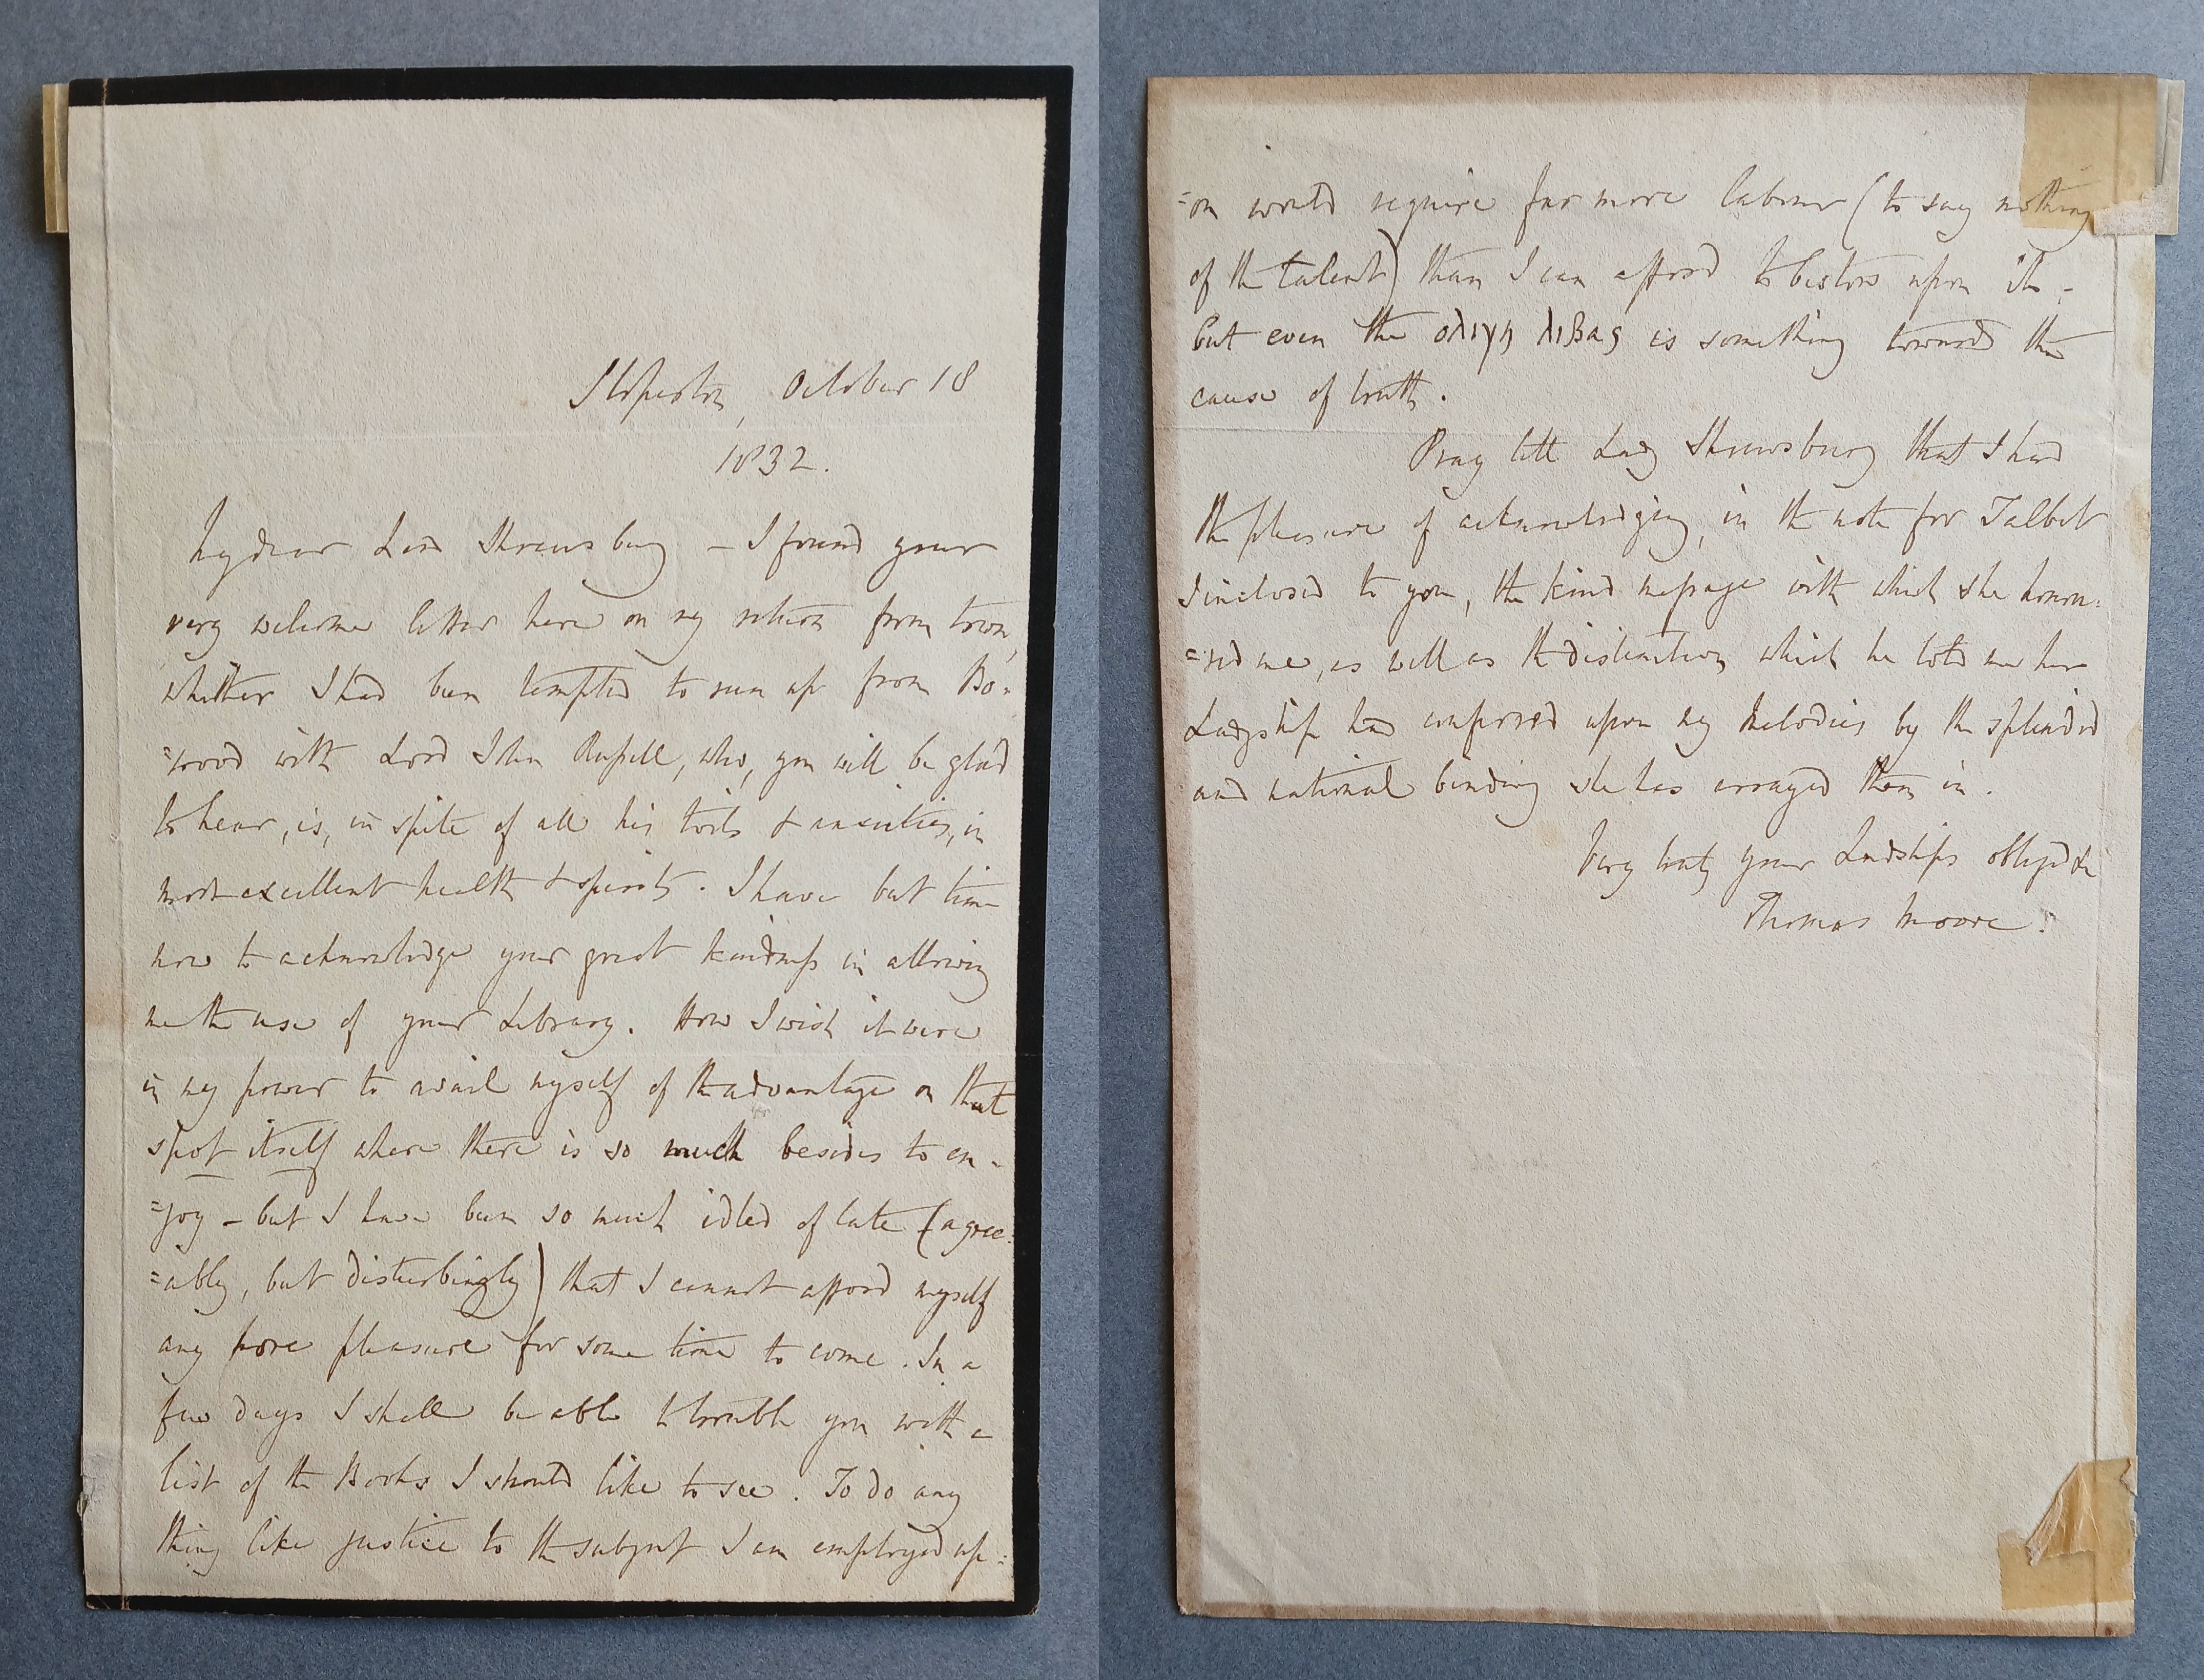 Sloperton, October 18
1832.
My dear Lord Shrewsbury – I found your
very welcome letter here on my return from town,
whither I had been tempted to run up from Bo-
=wood with Lord John Russell, who, you will be glad
to hear, is, in spite of all his toils & anxieties, in
most excellent health & spirits. I have but time
now to acknowledge your great kindness in allowing
me the use of your Library. How I wish it were
in my power to avail myself of the advantage on that
spot itself where there is so much besides to en-
=joy – but I have been so much idled of late (agree-
=ably, but disturbingly) that I cannot afford myself
any more pleasure for some time to come. In a
few days I shall be able to trouble you with a
list of the Books I should like to see. To do any
thing like justice to the subject I am employed up-
=on would require far more labour (to say nothing
of the talent) than I can afford to bestow upon it –
but even the ολιγη λιβας is something towards the
cause of truth.
Pray tell Lady Shrewsbury that I had
the pleasure of acknowledging, in the note for Talbot
I inclosed to you, the kind message with which she honou-
=red me, as well as the distinction which he told me her
Ladyship had conferred upon my Melodies by the splendid
and national binding she has arrayed them in.
Very truly your Lordship's obliged &c
Thomas Moore.